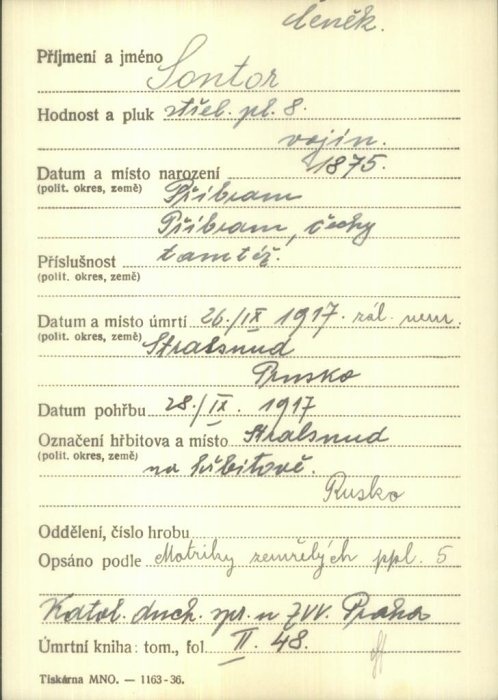 Čeněk.
Příjmení a jméno Sontor
Hodnost a pluk střel. pl. 8.
vojín.
Datum a místo narození 1875.
(polit. okres, země) Příbram
Příbram, Čechy
Příslušnost tamtéž.
(polit. okres, země)
Datum a místo úmrtí 26./IX 1917. zál. nem.
(polit. okres, země) Stralsnud
Prusko
Datum pohřbu 28./IX. 1917
Označení hřbitova a místo Stralsnud
(polit. okres, země)
na hřbitově.
Rusko
Oddělení, číslo hrobu
Opsáno podle Matriky zemřelých ppl. 5
Katol. duch. spr. u ZVV. Praha
Úmrtní kniha: tom., fol. II. 48.
Tiskárna MNO. — 1163-36.